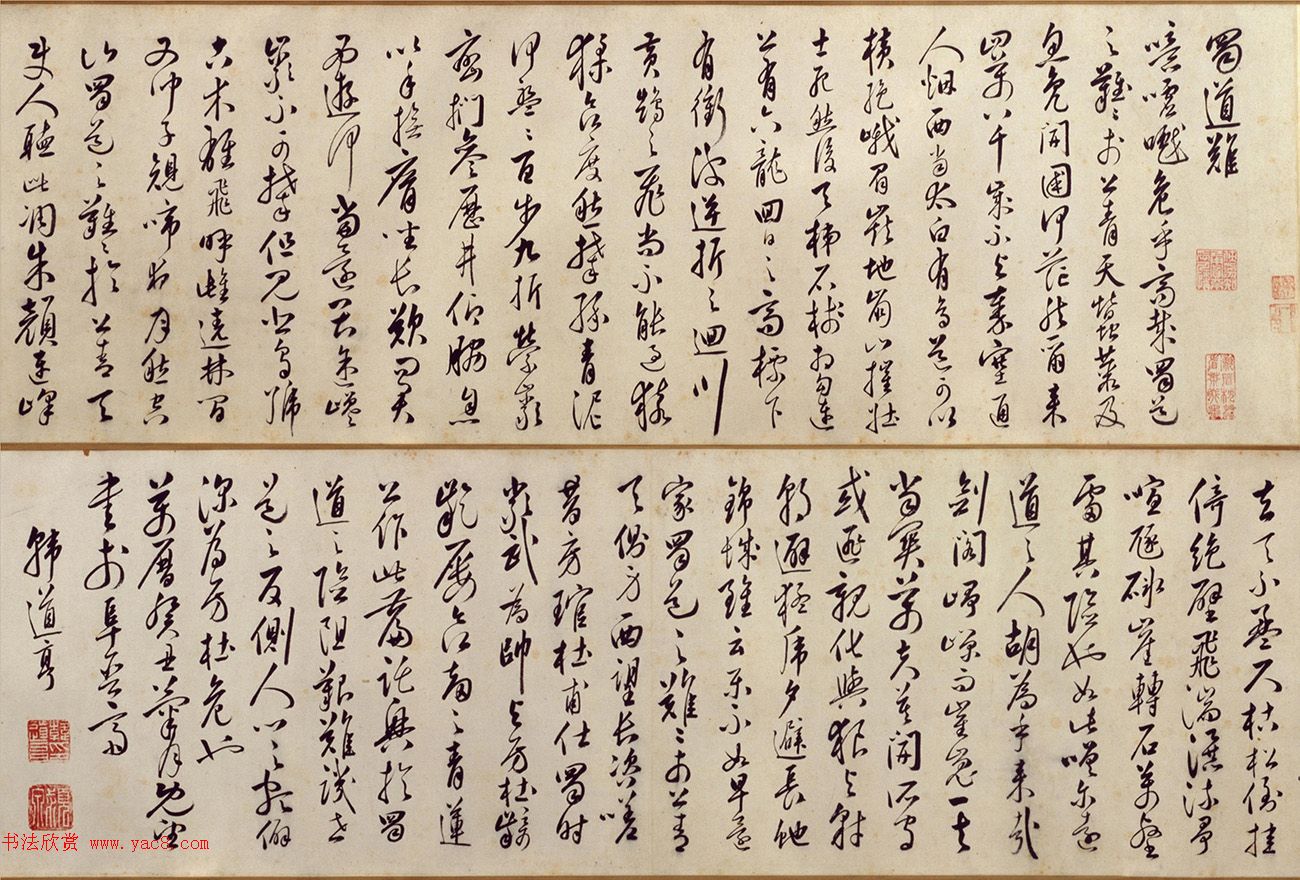 蜀道難
噫嘘嚱危乎高哉蜀道
之難難於上青天蠶叢及
魚鳧開國何茫然爾來
四萬八千歲不與秦塞通
人烟西當太白有鳥道可以
橫絕峨眉巔地崩山摧壯
士死然後天梯石棧相勾連
上有六龍回日之高標下
有衝波逆折之迴川
黃鶴之飛尚不能過猿
猱欲度愁攀緣青泥
何盤盤百步九折縈巖
巒捫參歷井仰脅息
以手撫膺坐長歎問君
西遊何當還畏途巉
巖不可攀但見悲鳥號
古木雄飛呼雌遶林間
又聞子規啼夜月愁空
山蜀道之難難於上青天
使人聽此凋朱顏連峰
去天不盈尺枯松倒挂
倚絕壁飛湍瀑流爭
喧豗砯崖轉石萬壑
雷其險也如此嗟爾遠
道之人胡為乎來哉
劍閣崢嶸而崔嵬一夫
當關萬夫莫開所守
或匪親化與狼與豺
朝避猛虎夕避長蛇
錦城雖云樂不如早還
家蜀道之難難於上青
天側身西望長咨嗟
昔房琯杜甫仕蜀時
嚴武為帥與房杜齮
齕屢欲害之青蓮
作此篇託興於蜀
道之險阻艱難譏世
道之反側人心之僻
深為房杜危也
萬曆癸丑菊月既望
書於阜
韓道亨
书法欣赏 www.yac8.com